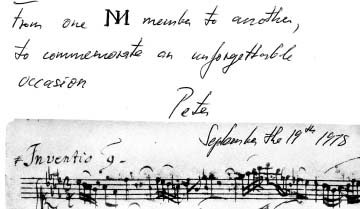 From one M member to another,
to commemorate an unforgettable
occasion
Peter
September the 19th 1978
Inventio 9.